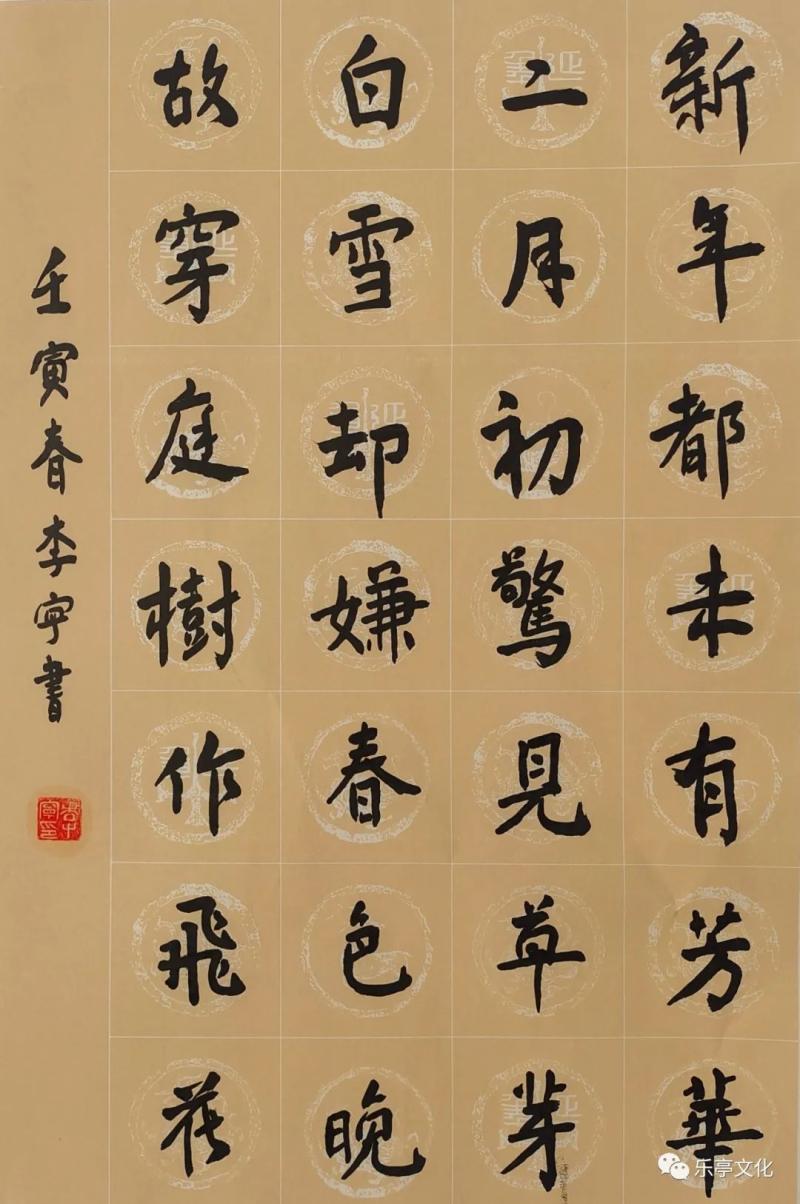 新年都未有芳華
二月初驚見草芽
白雪却嫌春色晚
故穿庭樹作飛花
壬寅春李宁書
乐亭文化